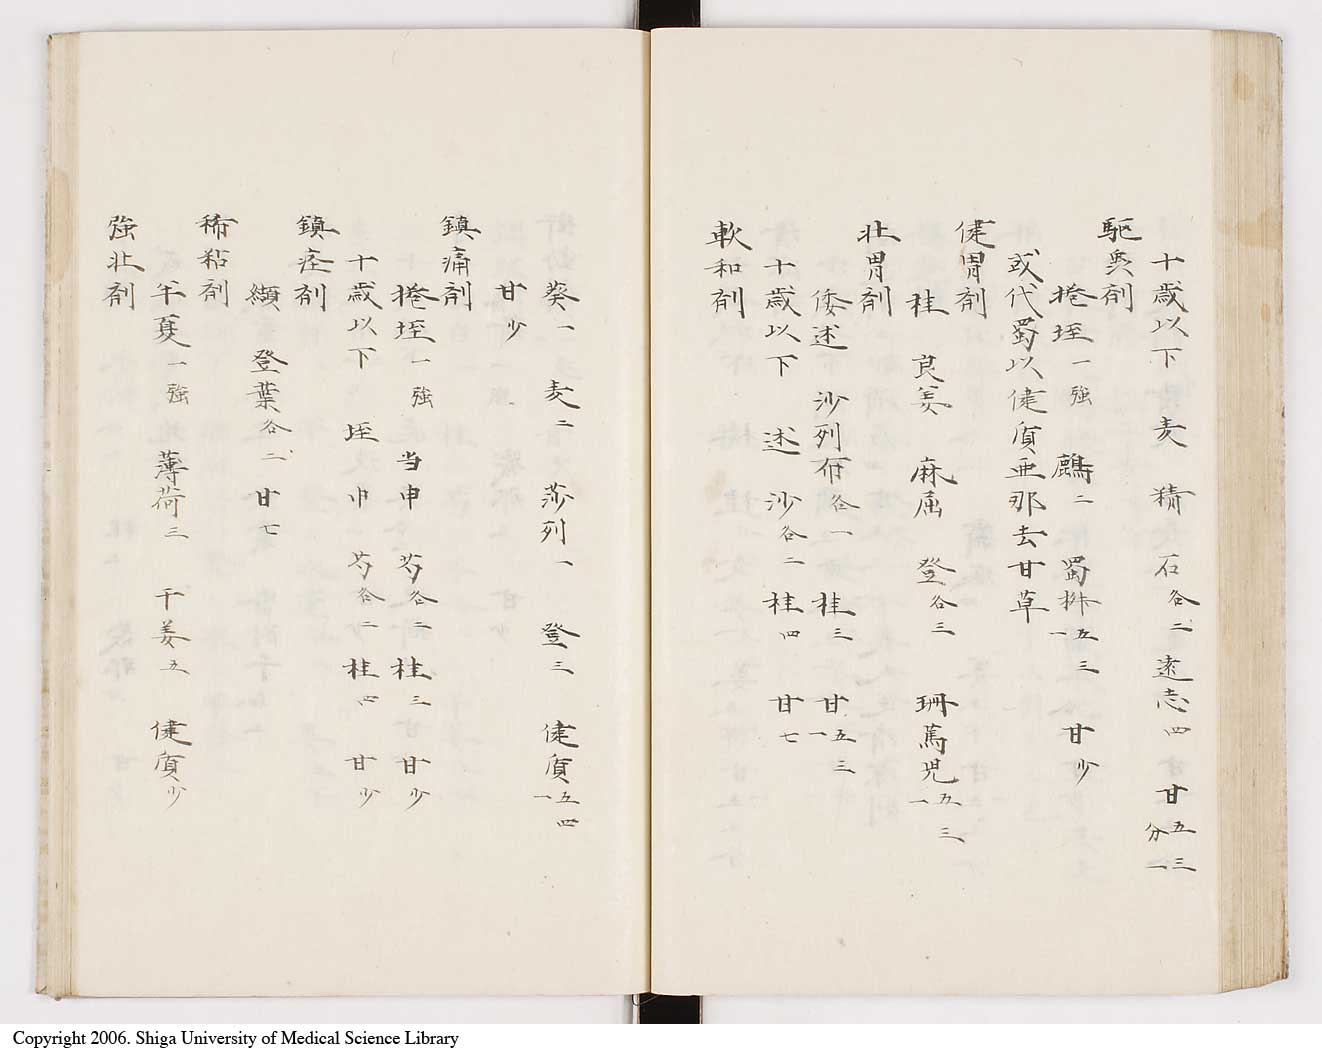 十歳以下 麦 精 石各二 遠志四 甘五三分一
駆 剤
捲 一強 鷓二 蜀 五三一 甘少
或代蜀以健質亜那去甘草
健胃剤
桂 良姜 麻屈 登各三 珊篤児五三一
壮胃剤
倭述 沙列布各一 桂三 甘五三一
十歳以下 述 沙各二 桂四 甘七
軟和剤
葵一 麦二 莎列一 登三 健質五四一
甘少
鎮痛剤
捲 一強 当 申 芍各二 桂三 甘少
十歳以下 芍各二 桂四 甘少
鎮痙剤
纈 登葉各二 甘七
稀粘剤
半夏一強 薄荷三 干姜五 健質少
強壮剤
Copyright 2006. Shiga University of Medical Science Library